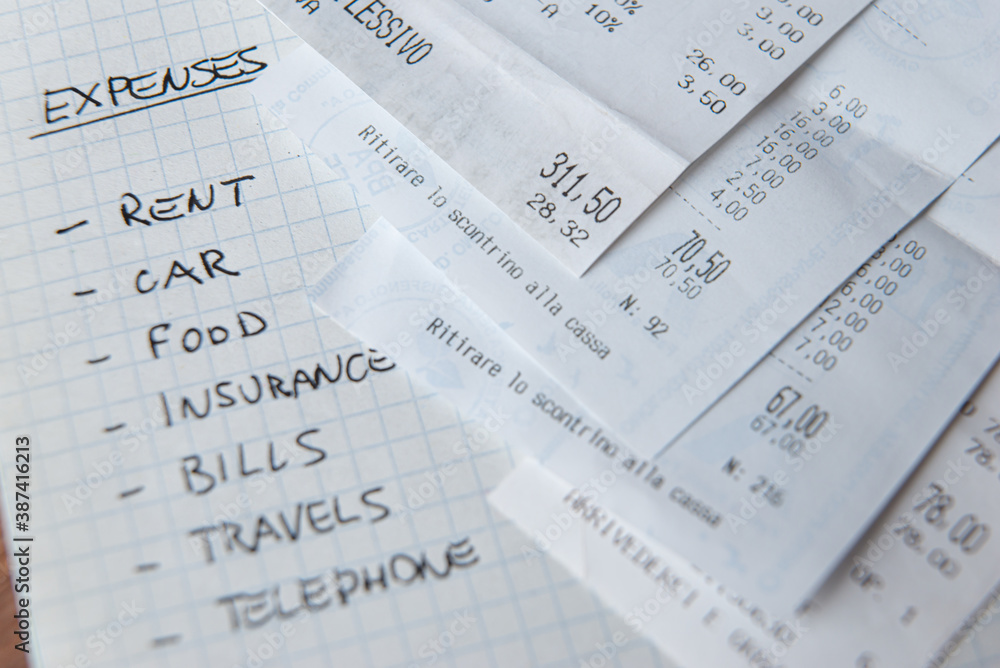 EXPENSES
- RENT
- CAR
- FOOD
- INSURANCE
- BILLS
- TRAVELS
- TELEPHONE
PLESSIVO
10%
3,00
3,00
26,00
3,50
311,50
28,32
Ritirare lo scontrino alla cassa
6,00
3,00
16,00
16,00
7,00
2,50
4,00
70,50
70,50
N: 92
Ritirare lo scontrino alla cassa
6,00
2,00
7,00
7,00
67,00
67,00
N: 216
ARRIVEDERCI E
78,00
78,00
Adobe Stock | #387416213